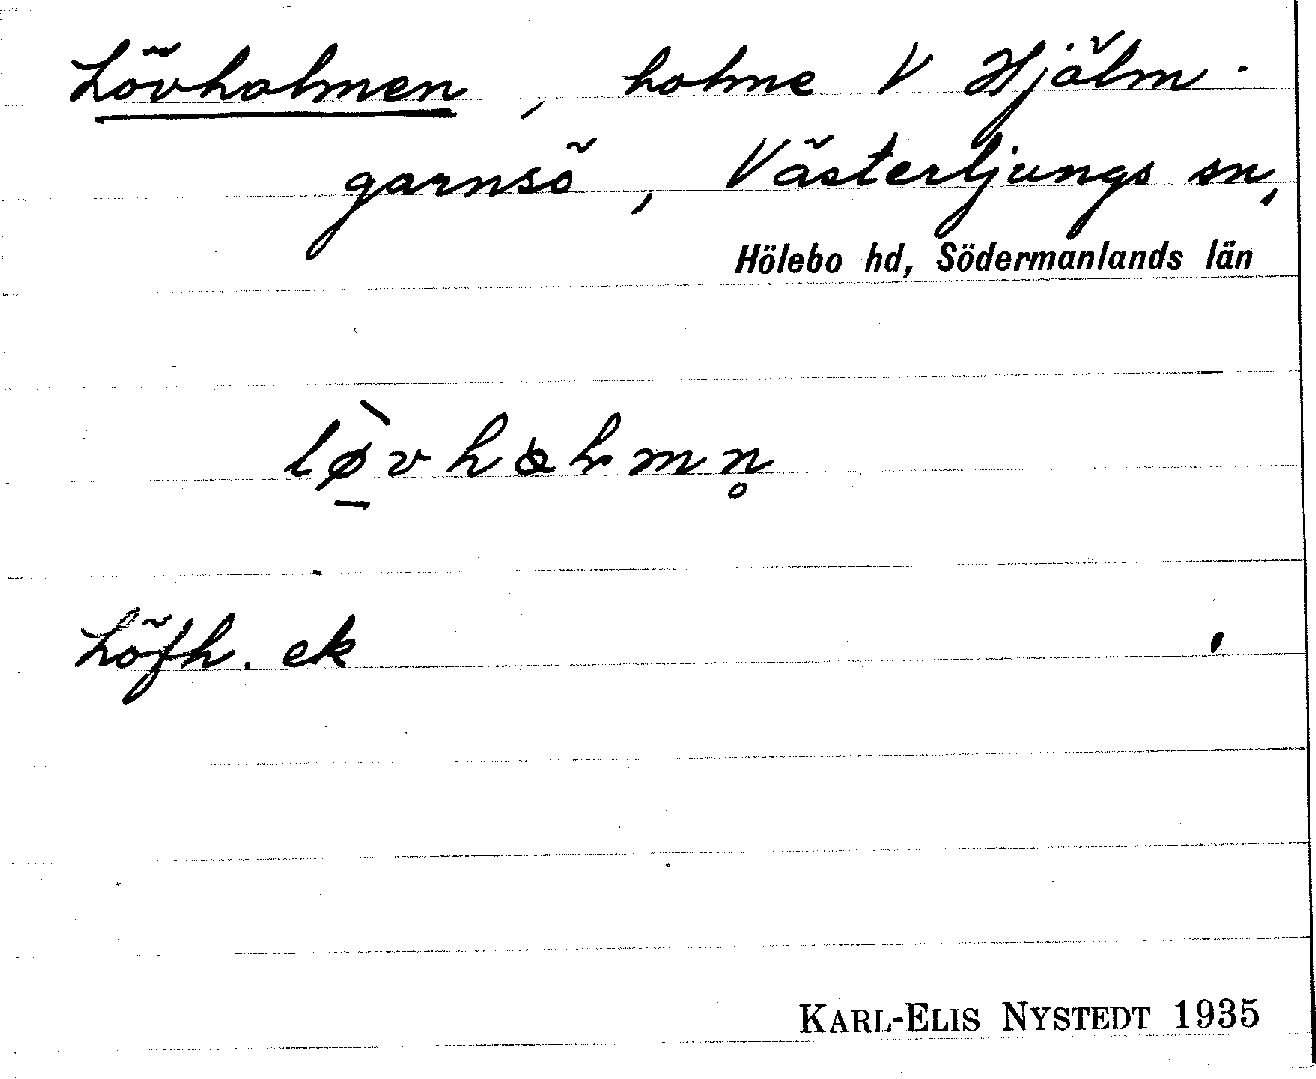 Lövholmen, holme V Hjälm-
garnsö, Västerljungs sn,
Hölebo hd, Södermanlands län
Löfh. ek
KARL-ELIS NYSTEDT 1935